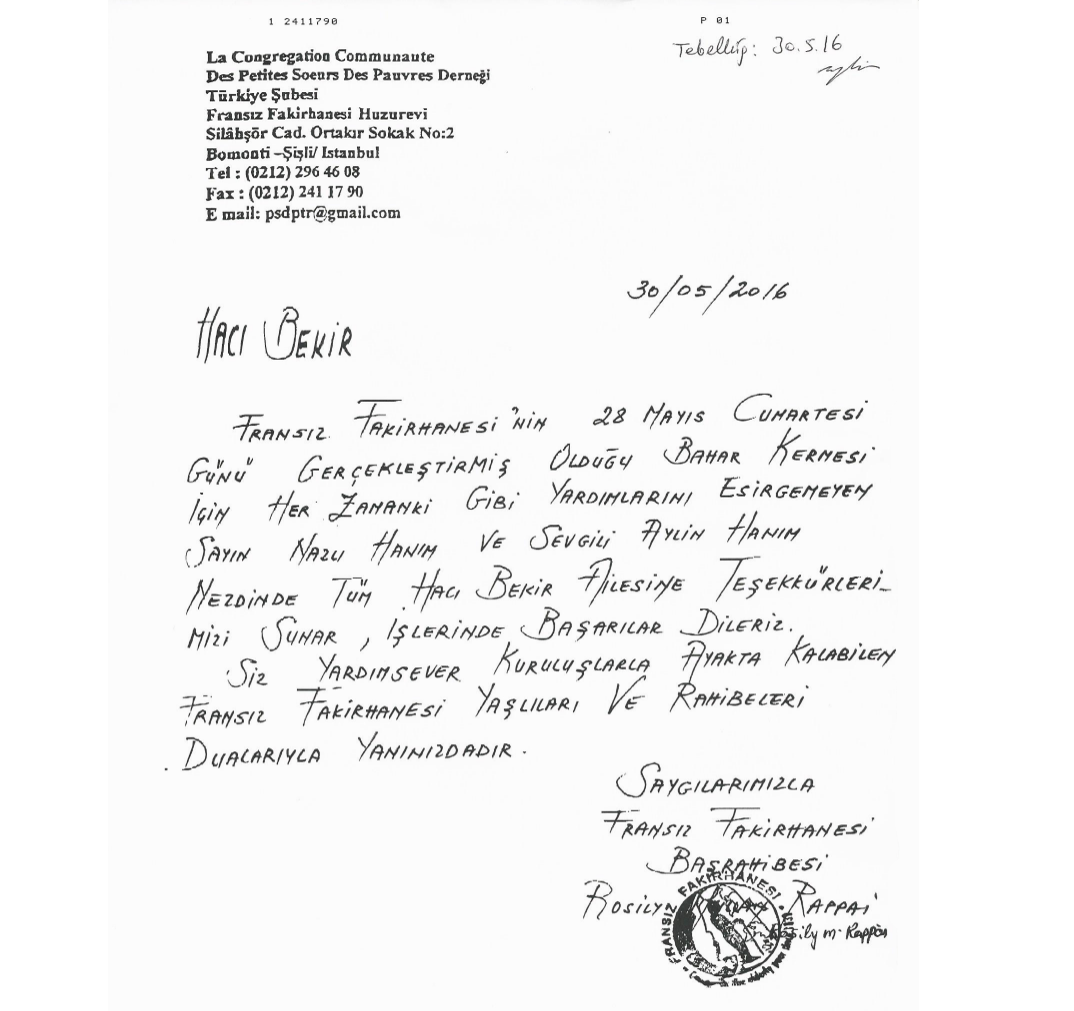 1 2411790
P 01
Tebellüğ: 30.5.16
La Congregation Communaute
Des Petites Soeurs Des Pauvres Derneği
Türkiye Şubesi
Fransız Fakirhanesi Huzurevi
Silâhşör Cad. Ortakır Sokak No:2
Bomonti –Şişli/ Istanbul
Tel : (0212) 296 46 08
Fax : (0212) 241 17 90
E mail: psdptr@gmail.com
30/05/2016
HACI BEKİR
FRANSIZ FAKİRHANESİ'NİN 28 MAYIS CUMARTESİ
GÜNÜ GERÇEKLEŞTİRMİŞ OLDUĞU BAHAR KERMESİ
İÇİN HER ZAMANKİ GİBİ YARDIMLARINI ESİRGEMEYEN
SAYIN NAZLI HANIM VE SEVGİLİ AYLİN HANIM
NEZDİNDE TÜM HACI BEKİR AİLESİNE TEŞEKKÜRLERİ-
MİZİ SUNAR, İŞLERİNDE BAŞARILAR DİLERİZ.
SİZ YARDIMSEVER KURULUŞLARLA AYAKTA KALABİLEN
FRANSIZ FAKİRHANESİ YAŞLILARI VE RAHİBELERİ
DUALARIYLA YANINIZDADIR.
SAYGILARIMIZLA
FRANSIZ FAKİRHANESİ
BAŞRAHİBESİ
ROSILY RAPPAİ
FRANSIZ FAKİRHANESİ
Rosily m. Rappai